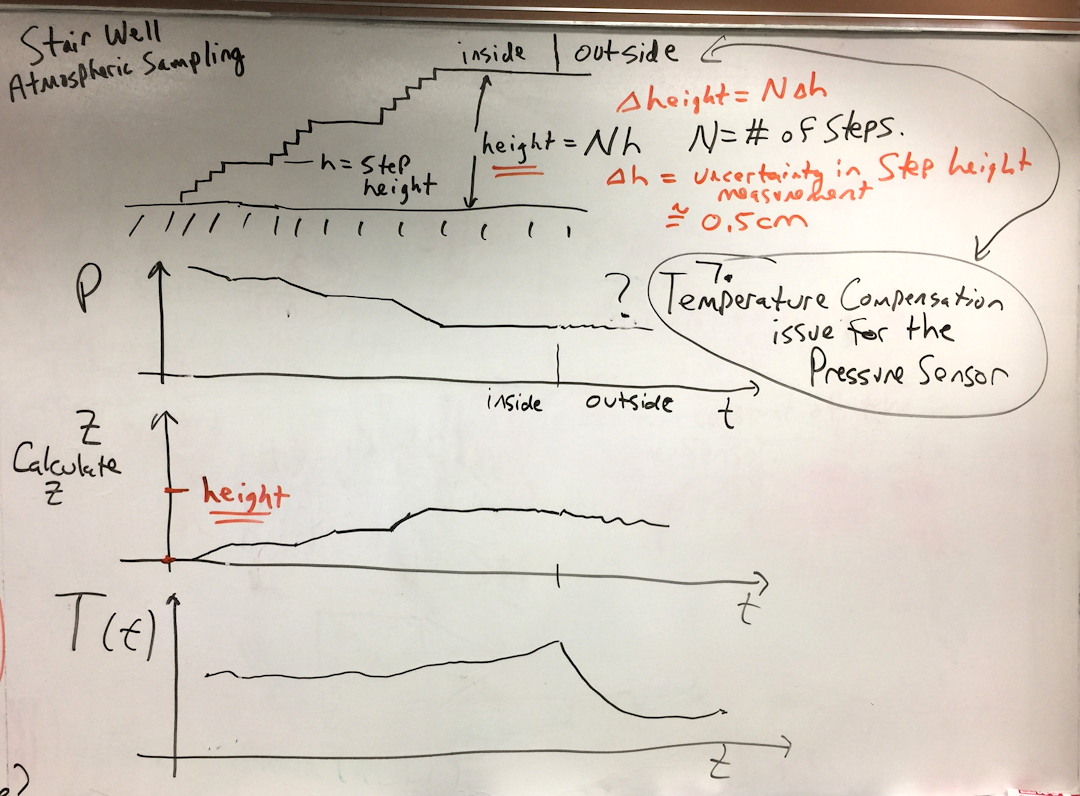 Stair Well
Atmospheric Sampling
inside | outside
Δheight = NΔh
height = Nh N = # of Steps.
h = Step
height
Δh = uncertainty in Step height
measurement
≅ 0.5cm
P
?
Temperature Compensation
issue for the
Pressure Sensor
inside outside t
Z
Calculate
Z
height
t
T(t)